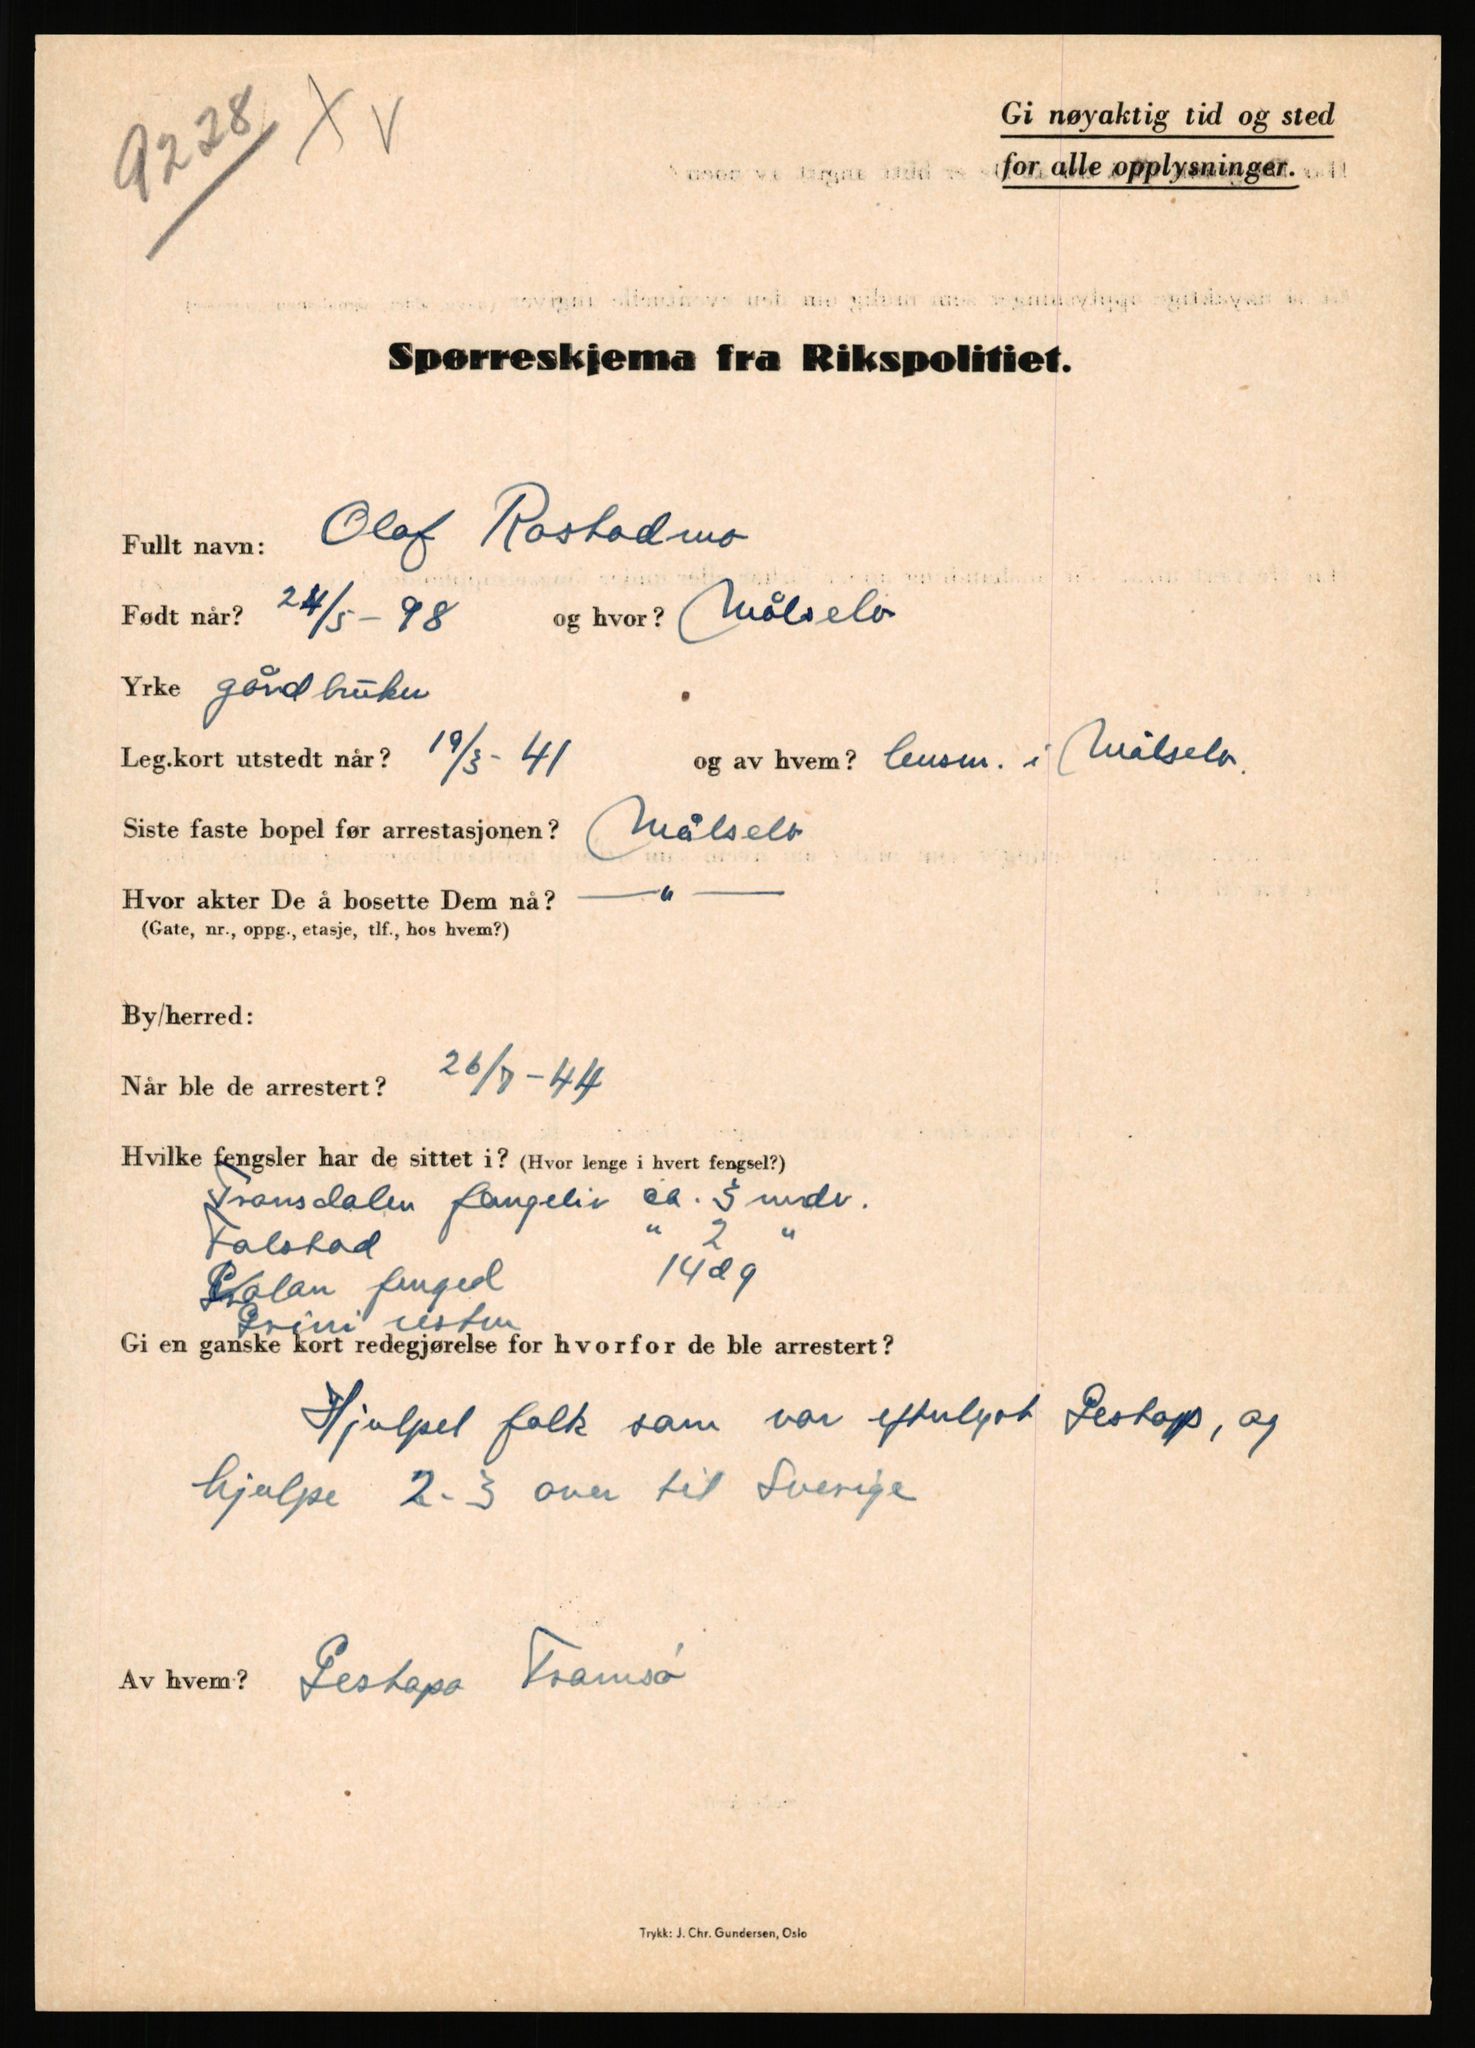 9228 X V
Gi nøyaktig tid og sted
for alle opplysninger.
Spørreskjema fra Rikspolitiet.
Fullt navn: Olaf Rostadmo
Født når? 24/5 - 98 og hvor? Målselv
Yrke gårdbruker
Leg.kort utstedt når? 19/3 - 41 og av hvem? lensm. i Målselv.
Siste faste bopel før arrestasjonen? Målselv
Hvor akter De å bosette Dem nå? — " —
(Gate, nr., oppg., etasje, tlf., hos hvem?)
By/herred:
Når ble de arrestert? 26/7 - 44
Hvilke fengsler har de sittet i? (Hvor lenge i hvert fengsel?)
Tromsdalen fangeleir ca. 3 mdr.
Falstad " 2 "
fengsel 14 dg
Grini resten
Gi en ganske kort redegjørelse for hvorfor de ble arrestert?
Hjulpet folk som var efterlyst Gestapo, og
hjulpe 2-3 over til Sverige
Av hvem? Gestapo Tromsø
Trykk: J. Chr. Gundersen, Oslo